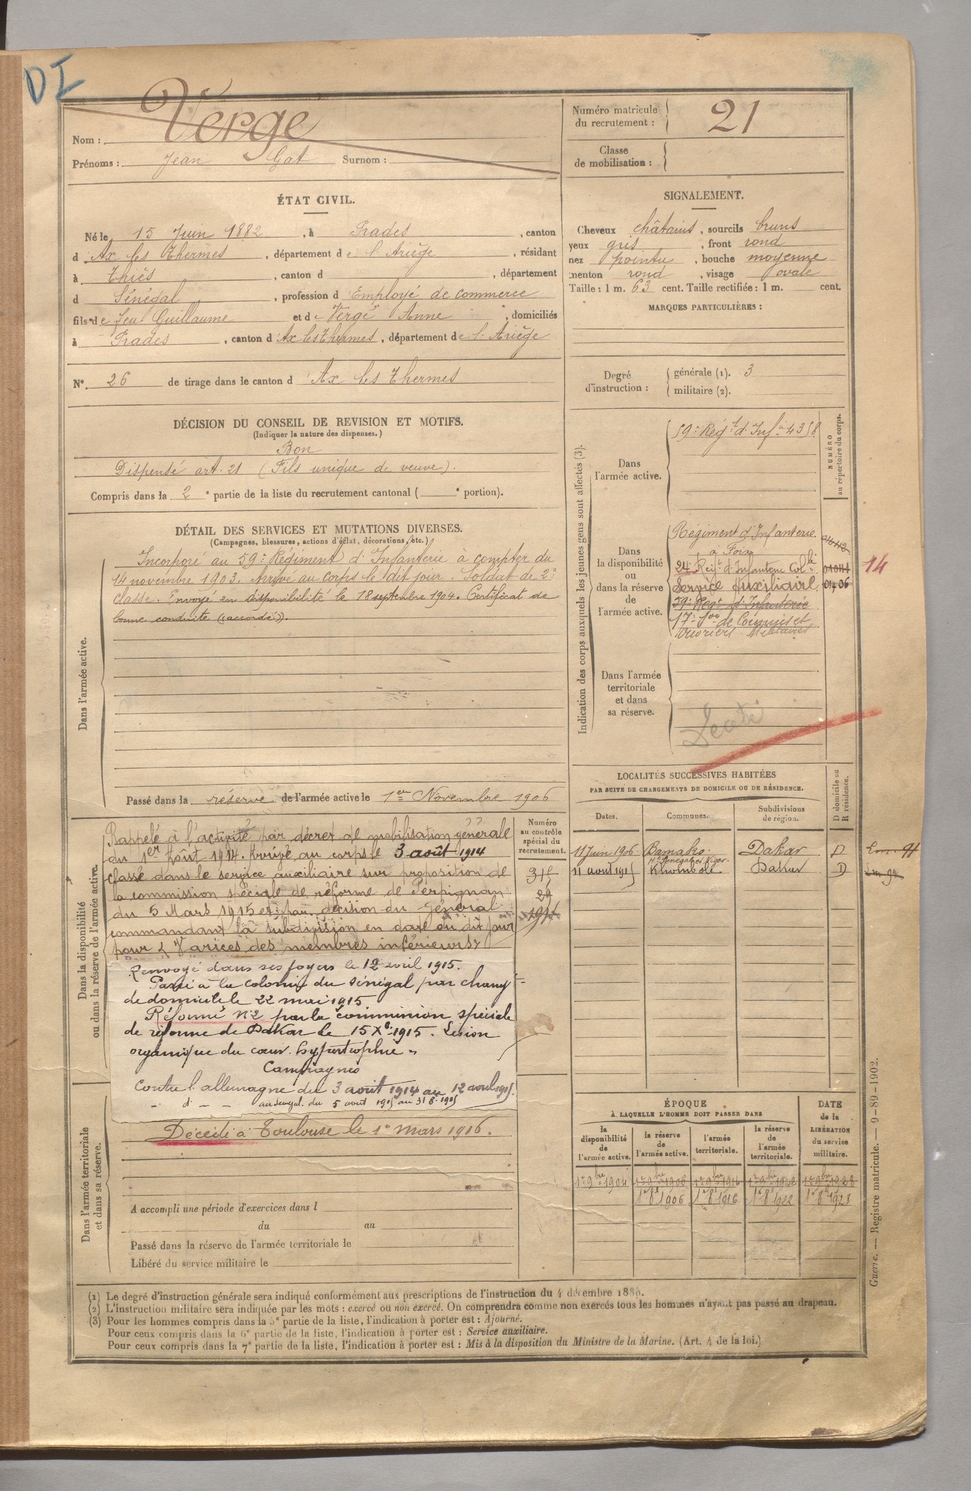 DI
Nom : Vergé
Prénoms : Jean Gat Surnom :
Numéro matricule du recrutement : 21
Classe de mobilisation :
ÉTAT CIVIL.
Né le 15 Juin 1882, à Prades, canton
d Ax les Thermes, département de l'Ariège, résidant
à Thiès, canton d , département
d Sénégal, profession d Employé de commerce
fils de feu Guillaume et de Vergé Anne, domiciliés
à Prades, canton d Ax les Thermes, département de l'Ariège
N° 26 de tirage dans le canton d Ax les Thermes
SIGNALEMENT.
Cheveux châtains, sourcils bruns
yeux gris, front rond
nez pointu, bouche moyenne
menton rond, visage ovale
Taille : 1 m. 63 cent. Taille rectifiée : 1 m. cent.
MARQUES PARTICULIÈRES :
Degré d'instruction : générale (1). 3
militaire (2).
DÉCISION DU CONSEIL DE REVISION ET MOTIFS.
(Indiquer la nature des dispenses.)
Bon
Dispensé art. 21 (Fils unique de veuve).
Compris dans la 2e partie de la liste du recrutement cantonal ( e portion).
DÉTAIL DES SERVICES ET MUTATIONS DIVERSES.
(Campagnes, blessures, actions d'éclat, décorations, etc.)
Dans l'armée active.
Incorporé au 59e Régiment d'Infanterie à compter du
14 novembre 1903. Arrivé au corps le dit jour. Soldat de 2e
classe. Envoyé en disponibilité le 18 septembre 1904. Certificat de
bonne conduite (accordé).
Passé dans la réserve de l'armée active le 1er Novembre 1906
Indication des corps auxquels les jeunes gens sont affectés (3).
NUMÉRO au répertoire du corps.
Dans l'armée active.
59e Régt d'Infie 4358
Dans la disponibilité ou dans la réserve de l'armée active.
Régiment d'Infanterie
à Foix
24e Régt d'Infanterie Cole
Service Auxiliaire
59e Régt d'Infanterie
17e Son de Commis et
Ouvriers Militaires
14
Dans l'armée territoriale et dans sa réserve.
Dans la disponibilité ou dans la réserve de l'armée active.
Numéro au contrôle spécial du recrutement.
Rappelé à l'activité par décret de mobilisation générale
du 1er Août 1914. Arrivé au corps le 3 août 1914
classé dans le service auxiliaire sur proposition de
la commission spéciale de réforme de Perpignan
du 5 Mars 1915 et par décision du Général
commandant la subdivision en date du dit jour
pour "Varices des membres inférieurs"
Renvoyé dans ses foyers le 12 avril 1915.
Passé à la colonie du Sénégal par changt
de domicile le 22 mai 1915
Réformé N°2 par la commission spéciale
de réforme de Dakar le 15 Xbre 1915. Lésion
organique du cœur. hypertrophie "
Campagnes
Contre l'Allemagne du 3 août 1914 au 12 avril 1915
- d° - - au Sénégal du 5 août 1915 au 31 8bre 1915
Dans l'armée territoriale et dans sa réserve.
Décédé à Toulouse le 1er mars 1916.
A accompli une période d'exercices dans l
du au
Passé dans la réserve de l'armée territoriale le
Libéré du service militaire le
LOCALITÉS SUCCESSIVES HABITÉES
PAR SUITE DE CHANGEMENTS DE DOMICILE OU DE RÉSIDENCE.
D domicile ou R résidence.
Dates. Communes. Subdivisions de région.
11 Juin 1906 Bamako Dakar D
Ht Sénégal et Niger
11 août 1915 Khombole Dakar D
ÉPOQUE
À LAQUELLE L'HOMME DOIT PASSER DANS
DATE de la LIBÉRATION du service militaire.
la disponibilité de l'armée active.
la réserve de l'armée active.
l'armée territoriale.
la réserve de l'armée territoriale.
1er 9bre 1904 1er 9bre 1906 1er 9bre 1916
1er 8bre 1906 1er 8bre 1916 1er 8bre 1922 1er 8bre 1928
Guerre. — Registre matricule. — 9-89-1902.
(1) Le degré d'instruction générale sera indiqué conformément aux prescriptions de l'instruction du 4 décembre 1889.
(2) L'instruction militaire sera indiquée par les mots : exercé ou non exercé. On comprendra comme non exercés tous les hommes n'ayant pas passé au drapeau.
(3) Pour les hommes compris dans la 5e partie de la liste, l'indication à porter est : Ajourné.
Pour ceux compris dans la 6e partie de la liste, l'indication à porter est : Service auxiliaire.
Pour ceux compris dans la 7e partie de la liste, l'indication à porter est : Mis à la disposition du Ministre de la Marine. (Art. 4 de la loi.)